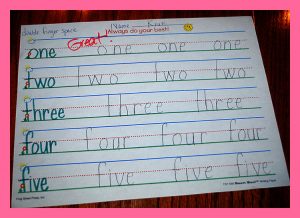 double finger space Name
Great! Always do your best!
one one one one
two two two two
three three three
four four four four
five five five five